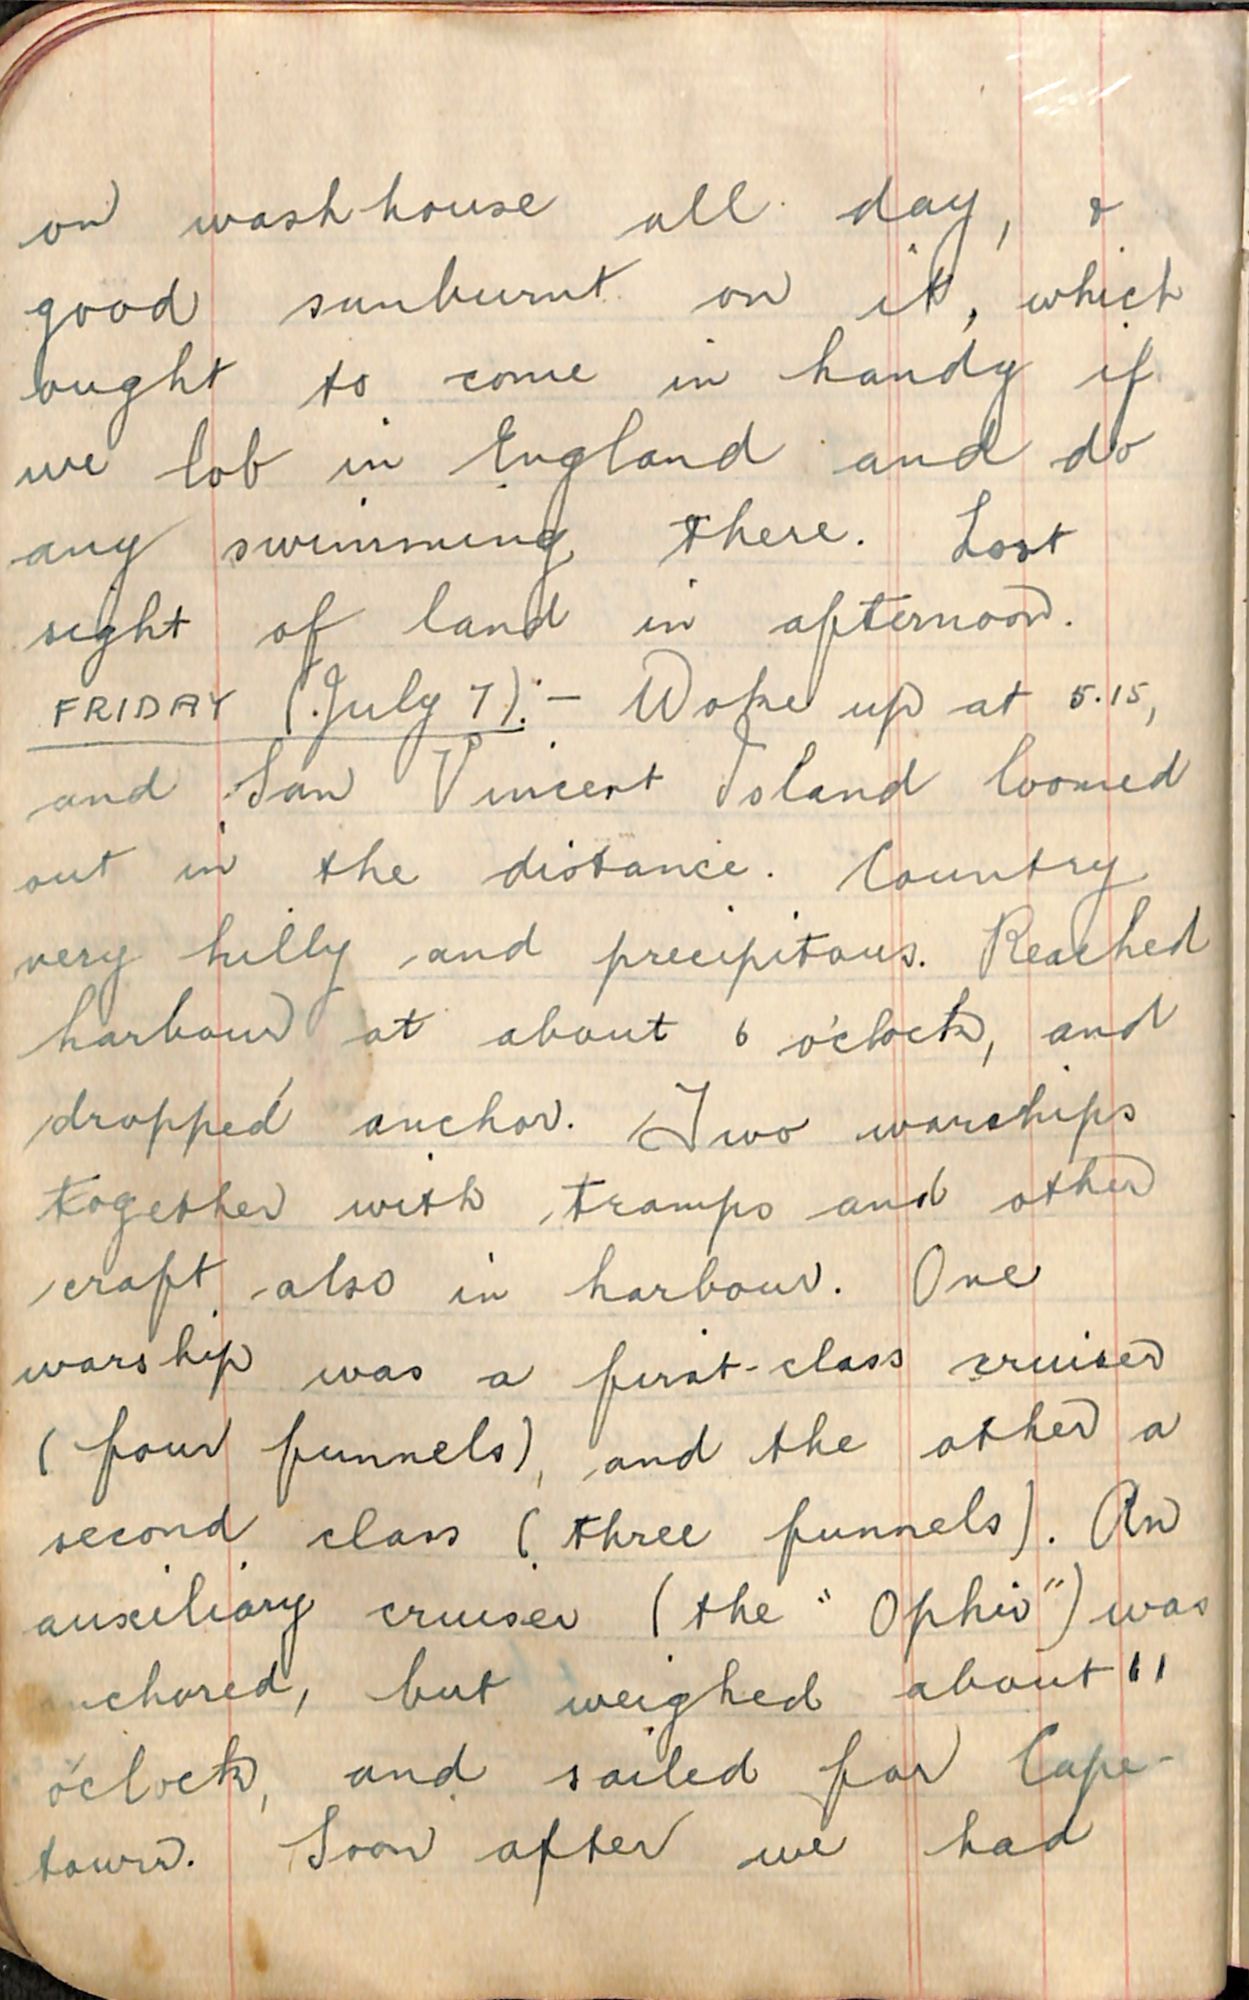 on wash-house all day, &
good sunburnt on it, which
ought to come in handy if
we lob in England and do
any swimming there. Lost
sight of land in afternoon.
FRIDAY (July 7):- Woke up at 5.15,
and San Vincent Island loomed
out in the distance. Country
very hilly and precipitous. Reached
harbour at about 6 o'clock, and
dropped anchor. Two warships
together with tramps and other
craft also in harbour. One
warship was a first-class cruiser
(four funnels), and the other a
second class (three funnels). An
auxiliary cruiser (the "Ophir") was
nchored, but weighed about 11
o'clock, and sailed for Cape-
town. Soon after we had